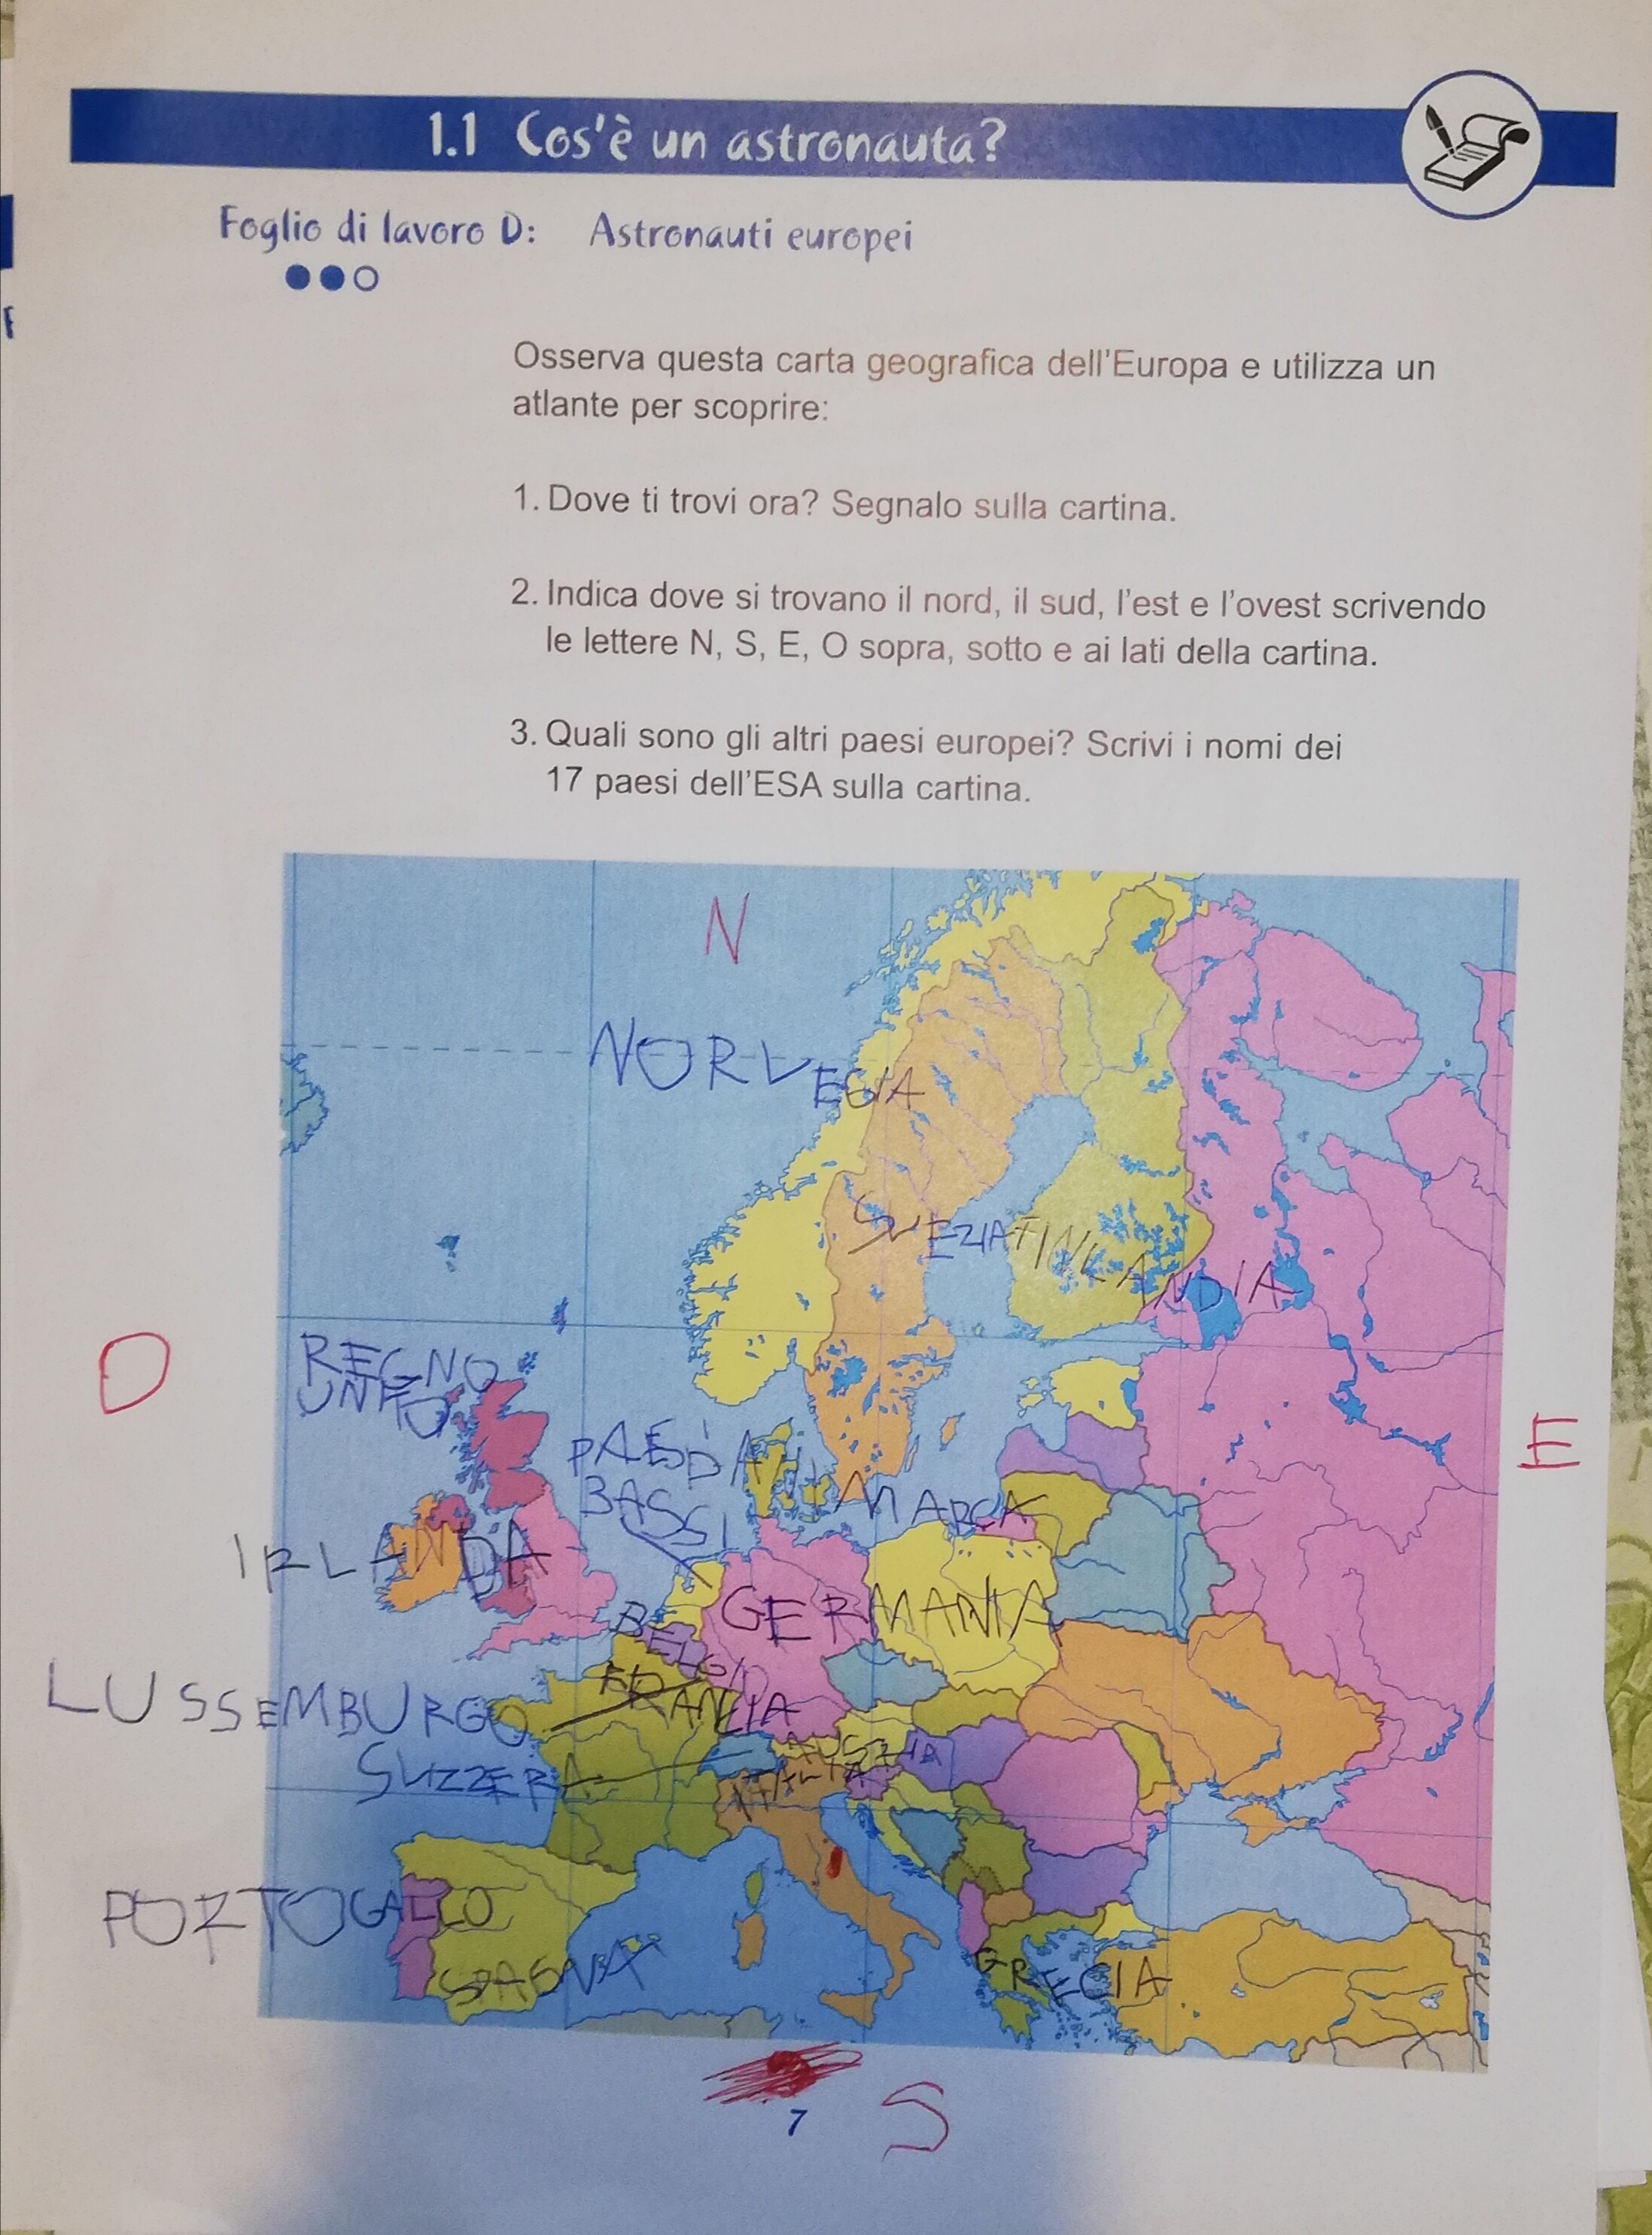 1.1 Cos'è un astronauta?
Foglio di lavoro D: Astronauti europei
Osserva questa carta geografica dell'Europa e utilizza un
atlante per scoprire:
1. Dove ti trovi ora? Segnalo sulla cartina.
2. Indica dove si trovano il nord, il sud, l'est e l'ovest scrivendo
le lettere N, S, E, O sopra, sotto e ai lati della cartina.
3. Quali sono gli altri paesi europei? Scrivi i nomi dei
17 paesi dell'ESA sulla cartina.
N
NORVEGIA
SVEZIA FINLANDIA
O
REGNO
UNITO
E
PAESI
BASSI
DANIMARCA
IRLANDA
GERMANIA
BELGIO
LUSSEMBURGO
FRANCIA
SVIZZERA
AUSTRIA
ITALIA
PORTOGALLO
SPAGNA
GRECIA
7
S